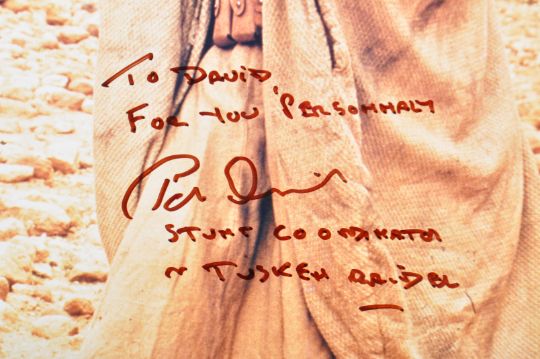 To DAVID,
FOR YOU 'PERSONMALY
STUNT COORDINATOR
N TUSKEN RAIDER